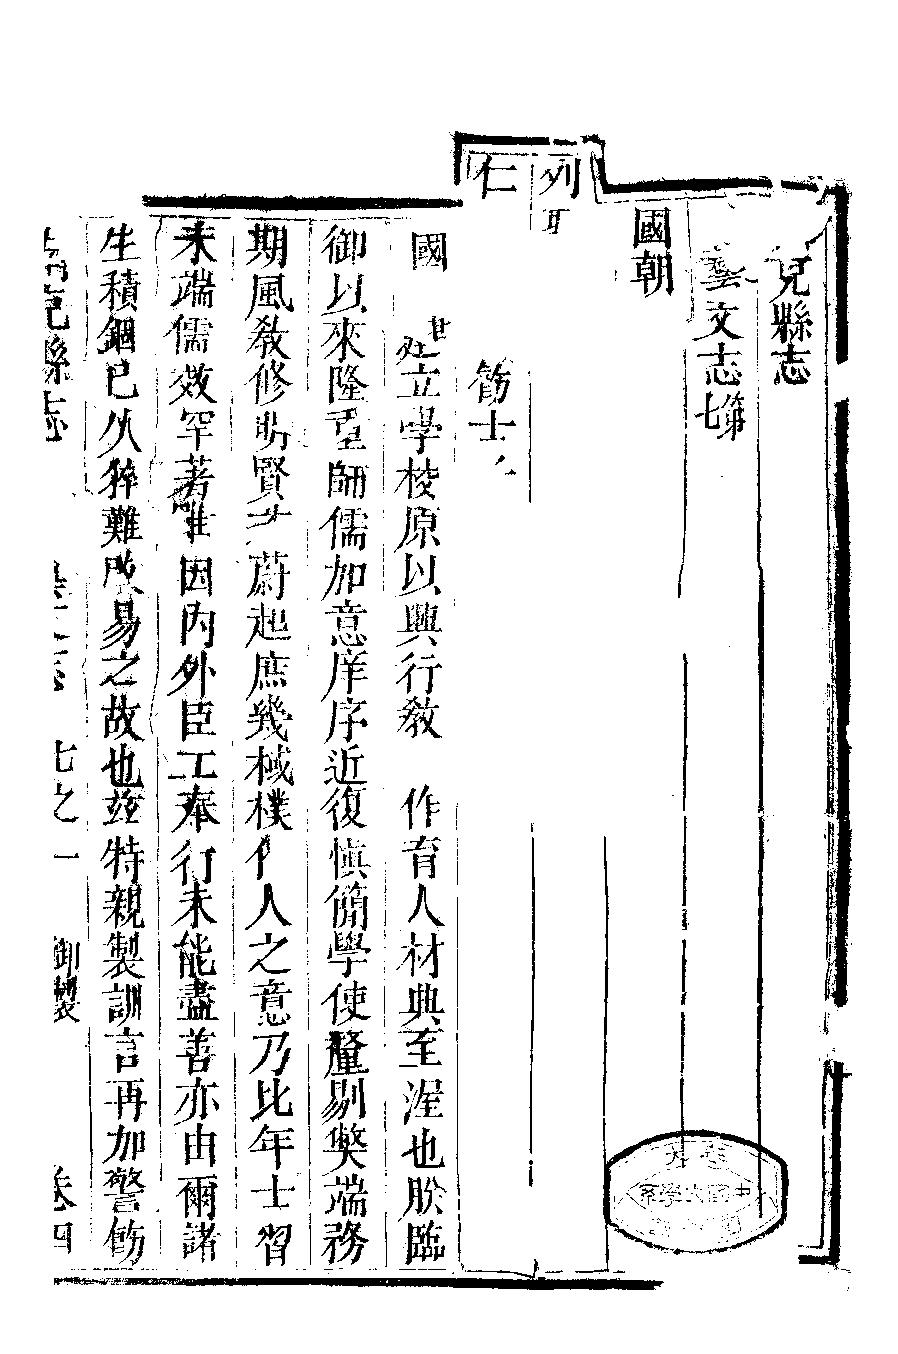 兒縣志
藝文志第七
國朝
列
仁
飭士
國
立學校原以興行敎 作育人材典至渥也朕臨
御以來隆重師儒加意庠序近復愼簡學使釐剔獘端務
期風敎修明賢才蔚起庶幾棫樸作人之意乃比年士習
未端儒效罕著雖因內外臣工奉行未能盡善亦由爾諸
生積錮已久猝難改易之故也茲特親製訓言再加警飭
兒縣志 七之一 御製 卷四